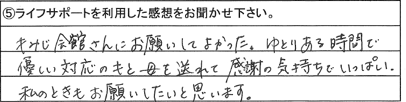 ⑤ライフサポートを利用した感想をお聞かせ下さい。
きみじ会館さんにお願いしてよかった。ゆとりある時間で
優しい対応のもと母を送れて感謝の気持ちでいっぱい。
私のときもお願いしたいと思います。